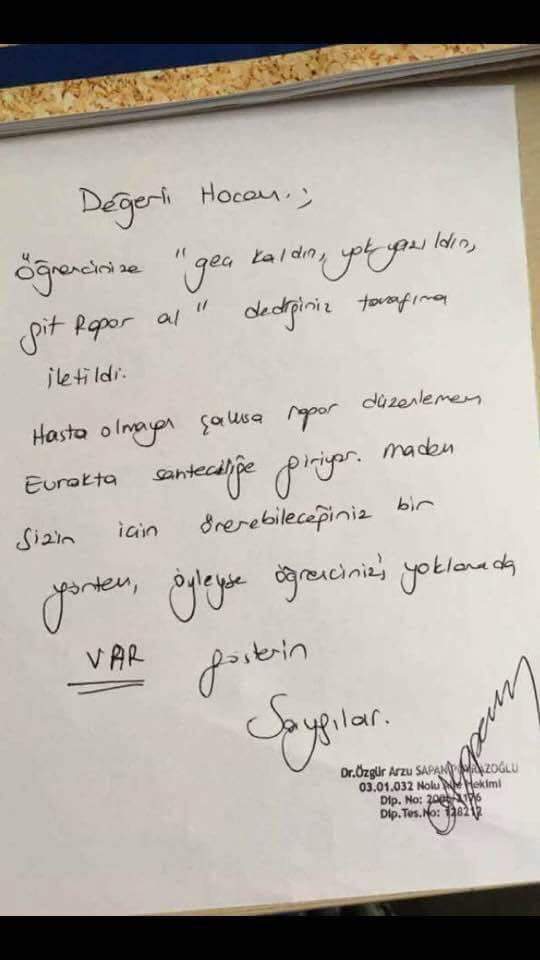 Değerli Hocam;
Öğrencinize "geç kaldın, yok yazıldın,
git Rapor al" dediğiniz tarafıma
iletildi.
Hasta olmayan şahısa rapor düzenlemem
Evrakta sahteciliğe giriyor. madem
sizin için önerebileceğiniz bir
yöntem, öyleyse öğrencinizi yoklamada
VAR gösterin
Saygılar.
Dr.Özgür Arzu SAPAN
03.01.032 Nolu Aile Hekimi
Dip. No:
Dip.Tes.No: 128212